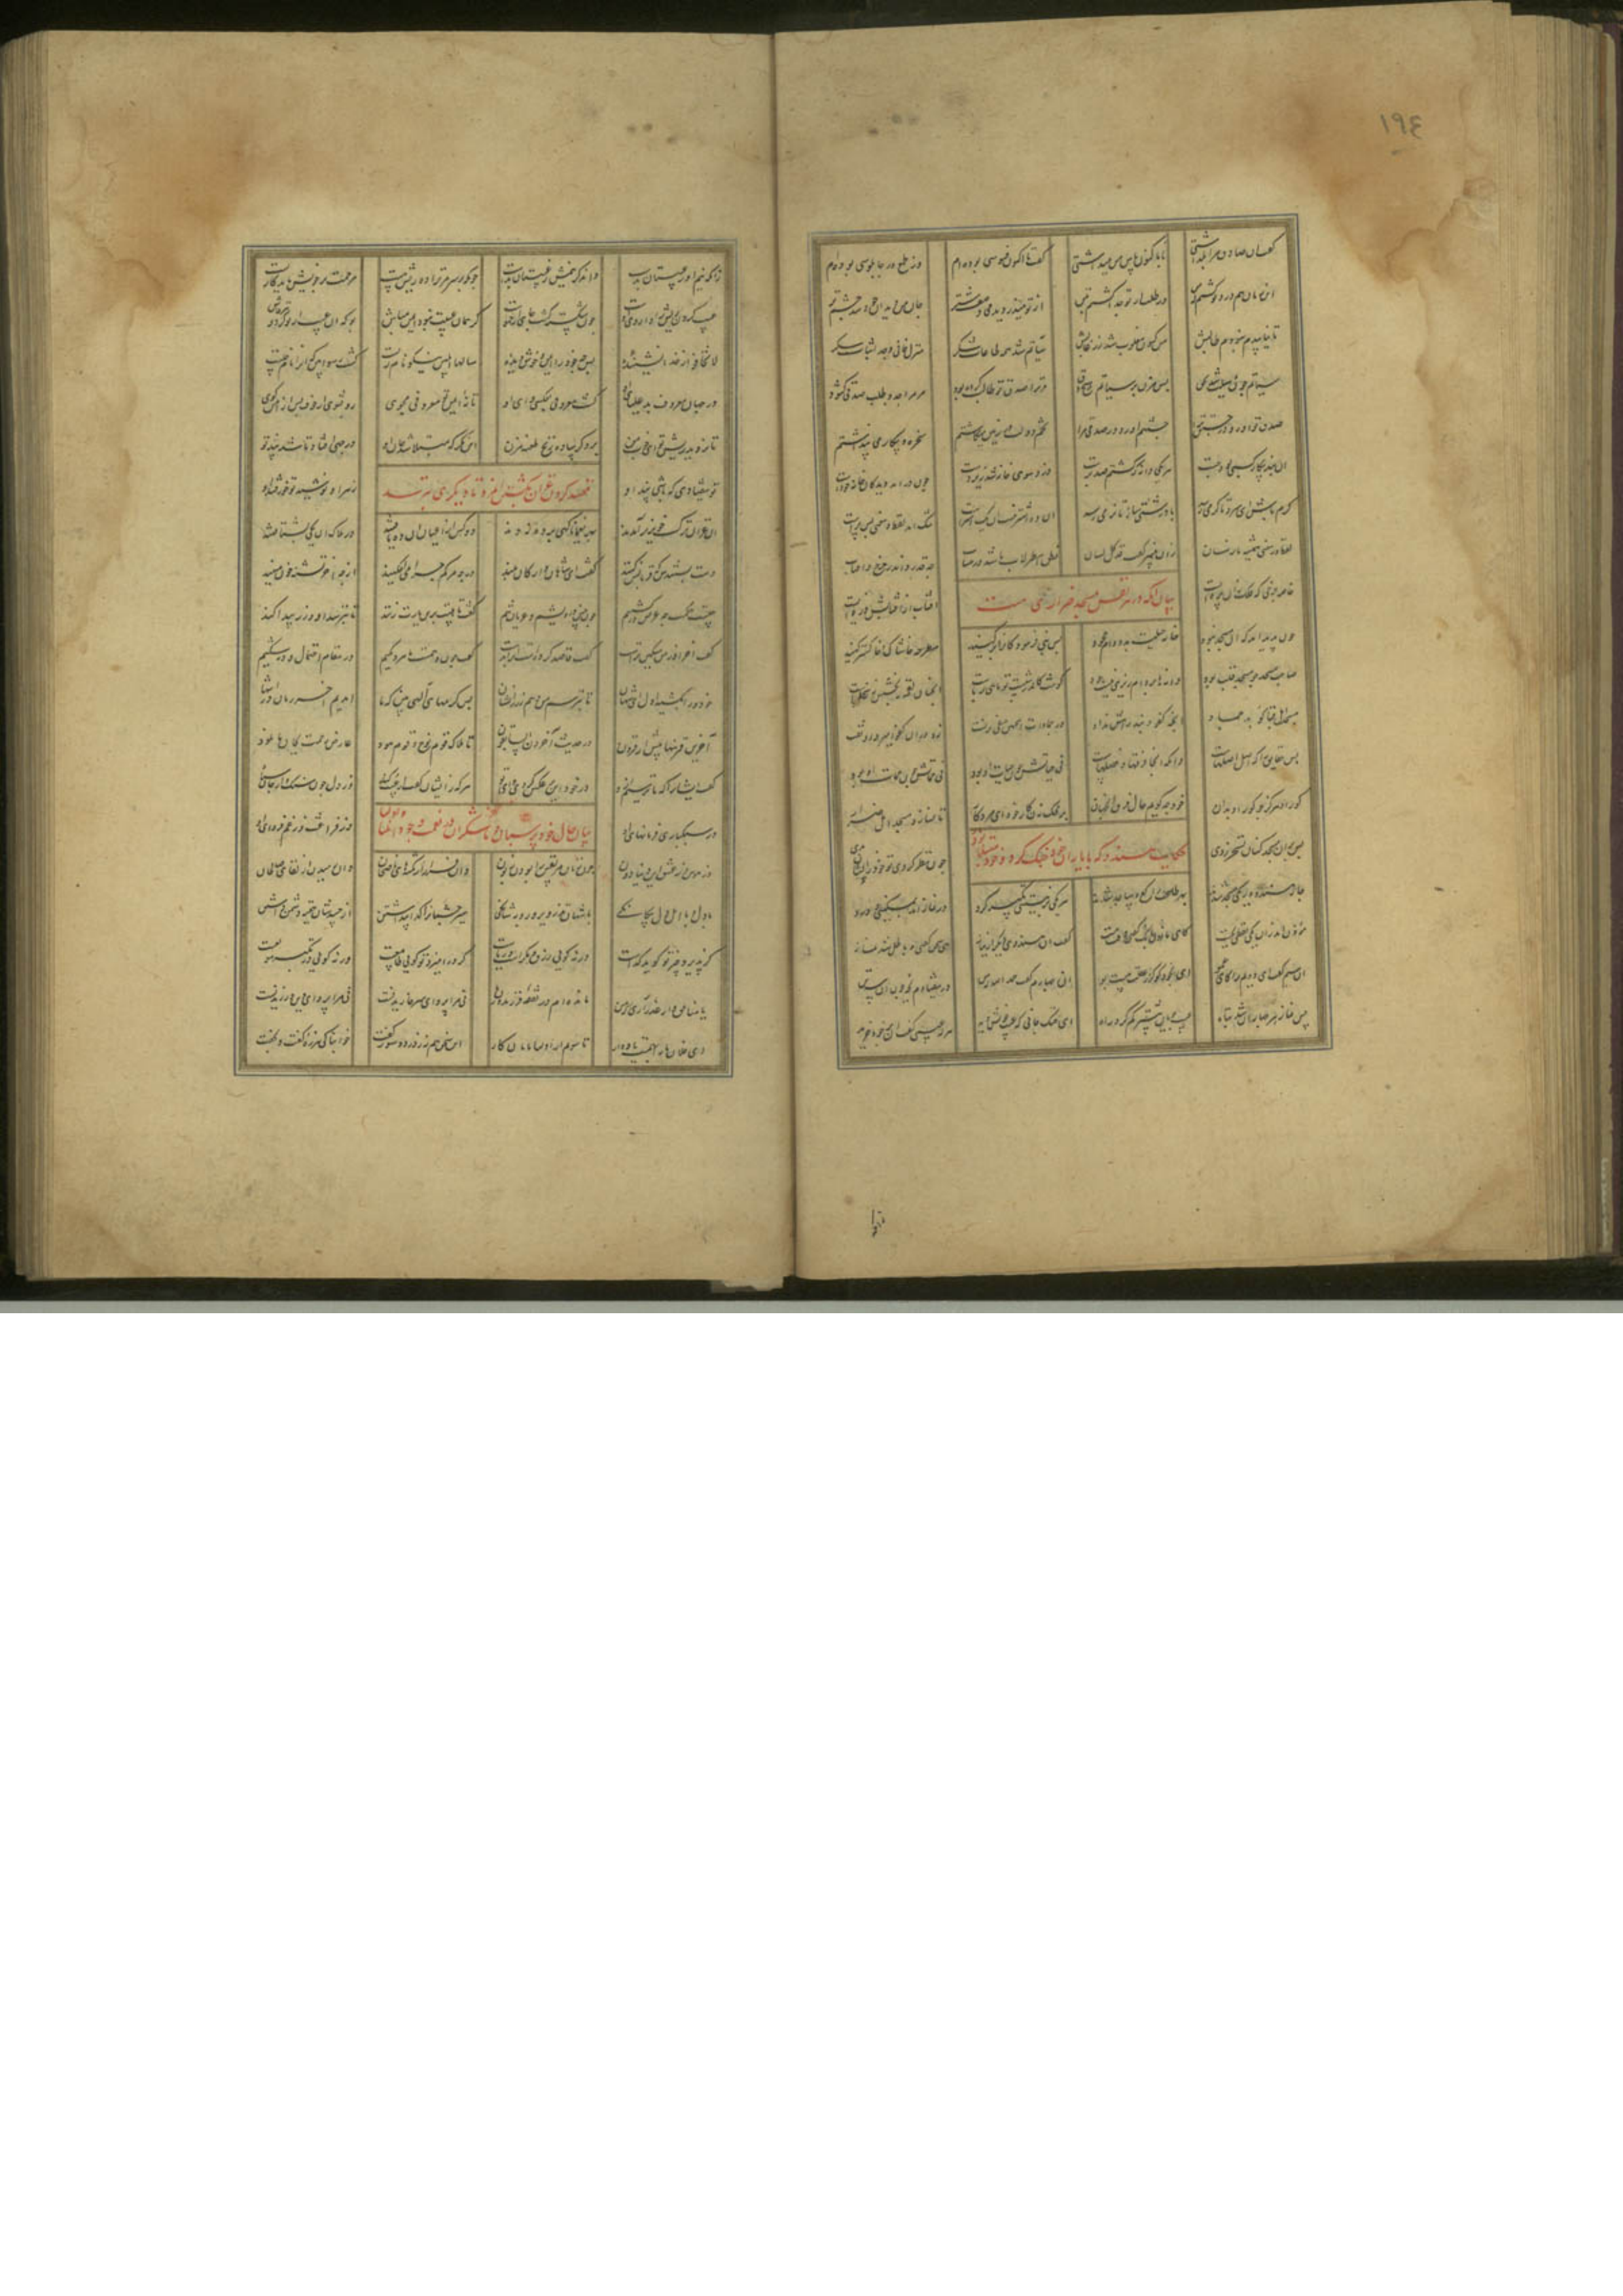 ١٩٤
گفت آن صادق مرا بگذاشتی تا باکنون پاس من میداشتی گفت تا اکنون فسوسی بوده ام وز طمع در چاپلوسی بوده ام
این زمان هم درد تو گشتم که من در طلب از تو جدا گشتم بتن از تو میدزدیدمی وصف شتر جان من دید آن خود شد چشم پر
تا نیابیدم نبودم طالبش مس کنون مغلوب شد زر غالبش سیآتم شد همه طاعات شکر هزل فانی و جد اثبات شکر
سیآتم چون وسیلت شد بحق پس مزن بر سیآتم هیچ دق مر ترا صدق تو طالب کرده بود مر مرا جد و طلب صدقی گشود
صدق تو آورد در جستن ترا جستنم آورد در صدقی مرا تخم دولت در زمین میکاشتم سخره و بیکار می پنداشتم
آن نبد بیکار کسبی بود چست هر یکی دانه که کشتم صد برست دزد سوی خانه شد زیردست چون در آمد دید کان خانه خودست
گرم باش ای سرد تا گرمی رسد با درشتی ساز تا نرمی رسد آن دو اشتر نیست آن یک اشترست تنک آمد لفظ و معنی بس پرست
لفظ در معنی همیشه نارسان زان پیمبر گفت قد کل لسان نطق اصطرلاب باشد در حساب چه قدر داند ز چرخ و آفتاب
خاصه چرخی که فلک زان پره ایست آفتاب از آفتابش ذره ایست
بیان آنکه در هر نفس مسجد ضراری هست
چون پدید آمد که آن مسجد نبود خانه حیلت بد و دام جهود پس نبی فرمود کانرا بر کنند مطرحه خاشاک و خاکستر کنند
صاحب مسجد چو مسجد قلب بود دانه ها بر دام ریزی نیست جود گوشت کاندر شست تو ماهی رباست آنچنان لقمه نه بخشش نه سخاست
مسجد اهل قبا کان بد جماد آنچه کفو او نبد راهش نداد در جمادات اینچنین حیفی نرفت زد در آن ناکفو امیر داد نفت
پس حقایق را که اصل اصلهاست دانکه آنجا فرقها و فصلهاست نی حیاتش چون حیات او بود نی مماتش چون ممات او بود
گور او هرگز چو گور او مدان خود چه گویم حال فرق آن جهان بر محک زن کار خود ای مرد کار تا نسازی مسجد اهل ضرار
پس بران مسجد کنان تسخر زدی چون نظر کردی تو خود زیشان بدی
حکایت هندو که با یاران خود جنگ میکرد و خود مبتلا بود
چار هندو در یکی مسجد شدند بهر طاعت راکع و ساجد شدند هر یکی بر نیتی تکبیر کرد در نماز آمد بمسکینی و درد
مؤذن آمد زان یکی لفظی بجست کای مؤذن بانک گفتی وقت هست گفت آن هندوی دیگر از نیاز هی سخن گفتی و باطل شد نماز
آن سیم گفت آن دوم را کای عمو چهارم گفت حمد الله که من در نیفتادم بچه چون آن سه تن
پس نماز هر چهاران شد تباه عیب گویان بیشتر گم کرده راه ای خنک جانی که عیب خویش دید هر که عیبی گفت آن بر خود خرید
زانکه نیم او ز عیبستان بدست وان دگر نیمش ز غیبستان بدست چونکه بر سر مر ترا ده ریش هست مرهمت بر خویش باید کار بست
عیب کردن خویش را داروی اوست چون شکسته گشت جای ارحمواست گر همان عیبت نبود ایمن مباش بوکه آن عیب از تو گردد نیز فاش
لا تخافوا از خدا نشنیده پس چه خود را ایمن و خوش دیده سالها ابلیس نیکو نام زیست گشت رسوا بین که او را نام چیست
در جهان معروف بد علیای او گشت معروفی بعکس ای وای او تا نه ایمن تو معروفی مجوی رو بشوی از خوف پس
تا نروید ریش تو ای خوب من بر دگر ساده زنخ طعنه مزن این نگر که مبتلا شد جان او در چهی افتاد تا شد پند تو
تو نیفتادی که باشی پند او زهر او نوشید تو خور قند او
قصد کردن غزان بکشتن مرد تا دیگری بترسد
آن غزان ترک خونریز آمدند بهر یغما ناگهی بر ده زدند دو کس از اعیان آن ده یافتند در هلاک آن یکی بشتافتند
دست بستندش که قربانش کنند گفت ای شاهان و ارکان بلند در چه مرگم چرا می افکنید از چه آخر تشنه خون منید
چیست حکمت چه غرض در کشتنم چون چنین درویشم و عریان تنم گفت تا هیبت برین یارت زند تا بترسد او و زر پیدا کند
گفت آخر او ز من مسکین ترست گفت قاصد کرده است او را زرست گفت چون وهمست ما هر دو یکیم در مقام احتمال و در شکیم
خود ورا بکشید اول ای شهان تا بترسم من دهم زر را نشان پس کرمهای آلهی بین که ما آمدیم آخر زمان در انتها
آخرین قرنها پیش از قرون در حدیث آخرون السابقون تا هلاک قوم نوح و قوم هود عارض رحمت بجان ما نمود
کشت ایشانرا که ما ترسیم ازو ور خود این بر عکس کردی وای تو هر که زیشان گفت از عیب و گناه وز دل چون سنک وز جان سیاه
بیان حال خود پرستان و ناشکران در نعمت وجود انبیا
وز سبکباری فرمانهای او وز فراغت از غم فردای او
وز هوس وز عشق این دنیای دون چون زنان مر نفس را بودن زبون وان فرار از نکتهای ناصحان وان رمیدن از لقای صالحان
با دل و با اهل دل بیگانگی با شهان تزویر و روبه شانگی سیر چشمانرا گدا پنداشتن از حسدشان خفیه دشمن داشتن
گر پذیرد چیز تو گوید گداست ورنه گویی زرق و مکرست و دغاست گر در آمیزد تو گویی طامعست ورنه گویی در تکبر مولعست
یا منافق وار عذر آری که من مانده ام در نفقه فرزند و زن نی مرا پروای سر خاریدنست نی مرا پروای دین ورزیدنست
ای فلان ما را بهمت یاد دار تا شویم از اولیا پایان کار این سخن هم نز درد و سوز گفت خوابناکی هرزه گفت و بخفت